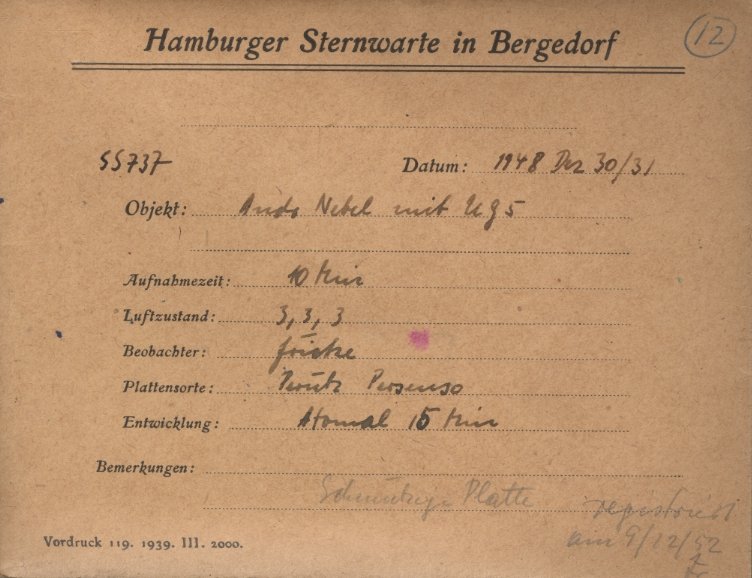 Hamburger Sternwarte in Bergedorf
12
SS737
Datum: 1948 Dez 30/31
Objekt: And. Nebel mit UG5
Aufnahmezeit: 10 Min
Luftzustand: 3, 3, 3
Beobachter: Fricke
Plattensorte: Perutz Persenso
Entwicklung: Atomal 15 Min
Bemerkungen:
Platte
registriert
am 9/12/52
Vordruck 119. 1939. III. 2000.